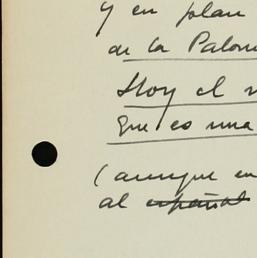 y en plan
de la Palom
Hoy el
que es una
(aunque en
al español